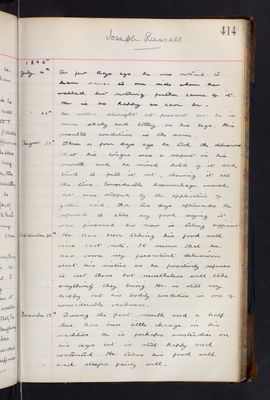 414
Joseph Russell
1896
July 4th A few days ago he was
on one side when he
walked but nothing further came of it.
He is as happy as ever.
He walks alright at present but he is
a shaky and tottery on his legs. His
mental condition is the same.
August Three or four days ago he took the delusion
that his tongue was a serpent in his
mouth and he seized hold of it and
tried to pull it out, all
the time. Considerable haemorrhage ensued
but was stopped by the application of
gallic acid. For two days afterwards he
refused to take any food saying it
was poisoned but now is taking
September He has been taking his food well
since last note. It seems that he
has some very persistent delusions
about his as he positively refuses
to see them but nevertheless will take
anything they bring. He is still very
happy but his bodily condition is one of
considerable weakness.
December During the past month and a half
there has been little change in his
condition. He is perhaps unsteadier on
his legs but is still happy and
contented. He takes his food well
and sleeps fairly well.